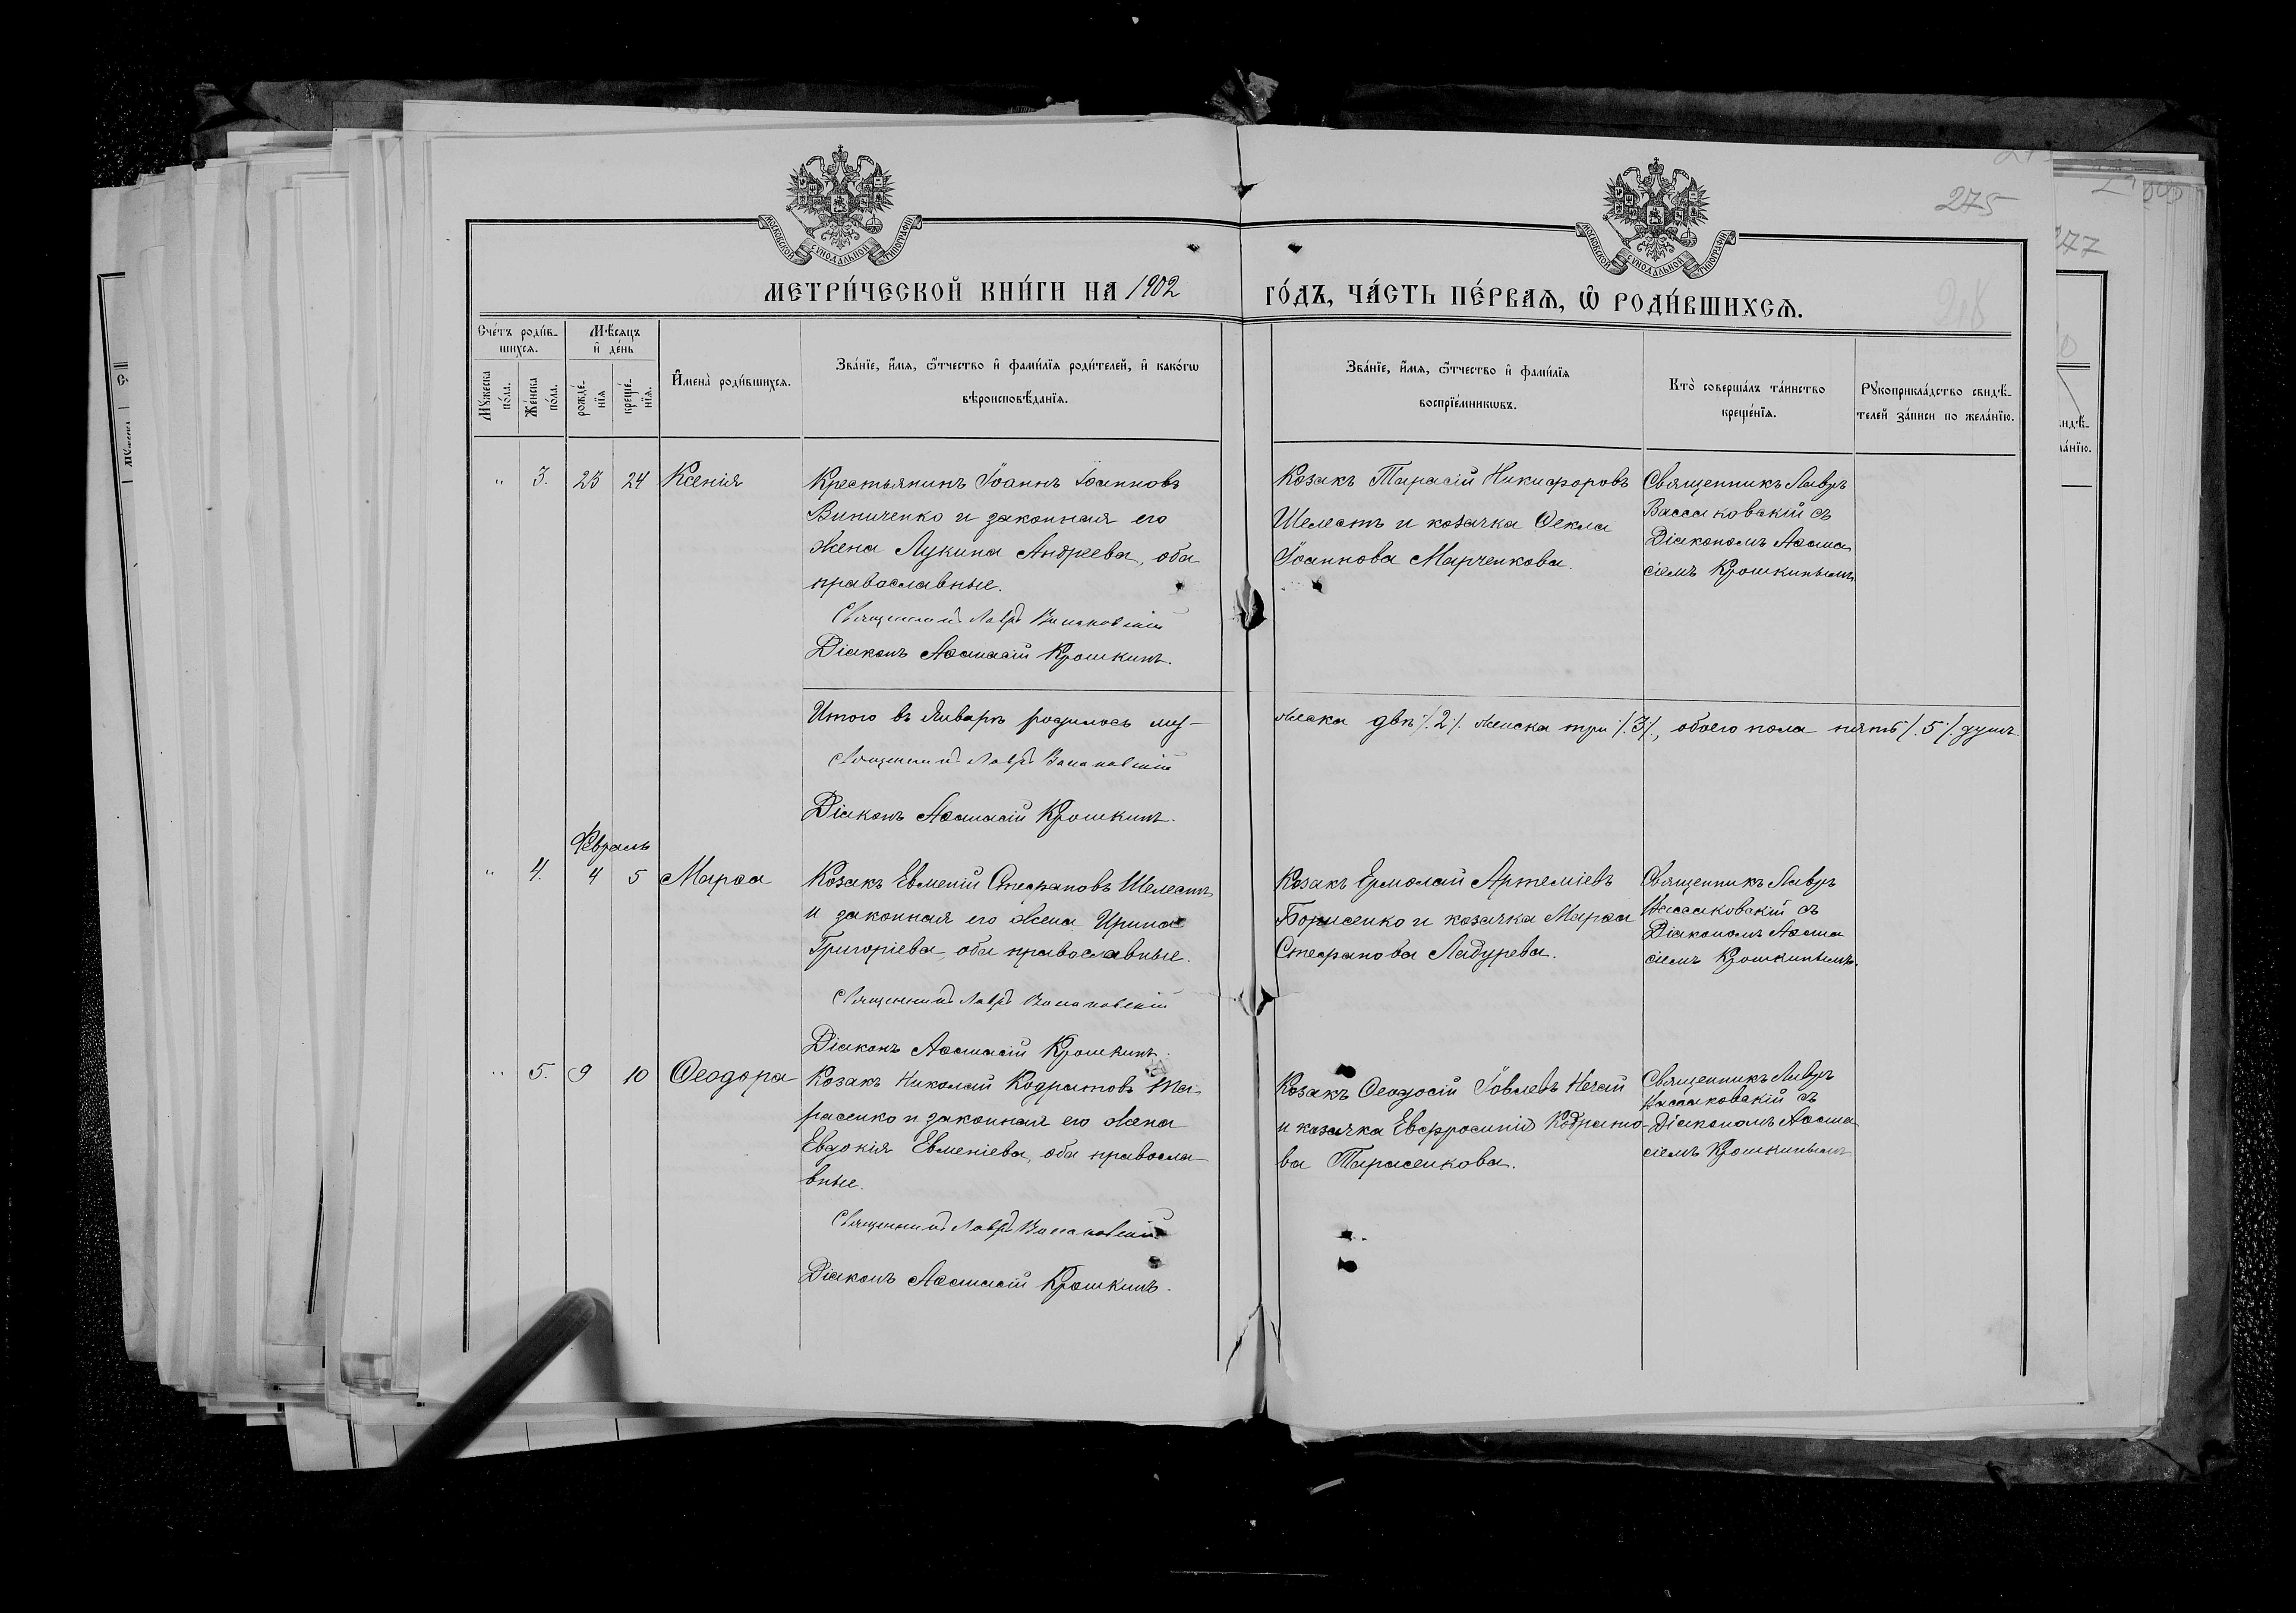 МОСКОВСКОЙ СУНОДАЛЬНОЙ ТИПОГРАФІИ
МОСКОВСКОЙ СУНОДАЛЬНОЙ ТИПОГРАФІИ
275
277
МЕТРИ́ЧЕСКОЙ КНИ́ГИ НА 1902
ГО́ДЪ, ЧА́СТЬ ПЕ́РВАѦ, Ѡ҆ РОДИ́ВШИХСѦ.
Сче́тъ роди́в-
шихсѧ.
Мѣ́сѧцъ
и҆ де́нь
Мꙋ́жеска
по́ла.
Же́нска
по́ла.
рожде́-
нїѧ
креще́-
нїѧ.
И҆мена̀ роди́вшихсѧ.
Зва́нїе, и҆́мѧ, ѻ҆́тчество и҆ фами́лїѧ роди́телей, и҆ како́гѡ
вѣроисповѣ́данїѧ.
Зва́нїе, и҆́мѧ, ѻ҆́тчество и҆ фами́лїѧ
воспрїе́мникѡвъ.
Кто̀ соверша́лъ та́инство
креще́нїѧ.
Рꙋкоприкла́дство свидѣ́-
телей за́писи по жела́нїю.
" 3. 23 24 Ксенія
Крестьянинъ Іоаннъ Іоанновъ
Виниченко и законная его
жена Лукина Андреева, оба
православные.
Священникъ Лавръ Вассаковскій
Діаконъ Аѳанасій Крошкинъ.
Козакъ Тарасій Никифоровъ
Шелестъ и козачка Ѳекла
Іоаннова Марченкова.
Священникъ Лавръ
Вассаковскій съ
Діакономъ Аѳана
сіемъ Крошкинымъ
Итого въ Январѣ родилось муж-
жеска двѣ /.2/. женска три /.3/., обоего пола пять /.5/. душъ.
Священникъ Лавръ Вассаковскій
Діаконъ Аѳанасій Крошкинъ.
Февраль
" 4. 4 5 Марѳа
Козакъ Евменій Стефановъ Шелестъ
и законная его жена Ирина
Григоріева, оба православные.
Священникъ Лавръ Вассаковскій
Діаконъ Аѳанасій Крошкинъ.
Козакъ Ермолай Артеміевъ
Борисенко и козачка Марѳа
Стефанова Ладурева.
Священникъ Лавръ
Вассаковскій съ
Діакономъ Аѳана
сіемъ Крошкинымъ.
" 5. 9 10 Ѳеодора
Козакъ Николай Кодратовъ Та-
расенко и законная его жена
Евдокія Евменіева, оба правосла-
вные.
Священникъ Лавръ Вассаковскій
Діаконъ Аѳанасій Крошкинъ.
Козакъ Ѳеодосій Іовлевъ Нечай
и козачка Евфросинія Кодрато-
ва Тарасенкова.
Священникъ Лавръ
Вассаковскій съ
Діакономъ Аѳана
сіемъ Крошкинымъ